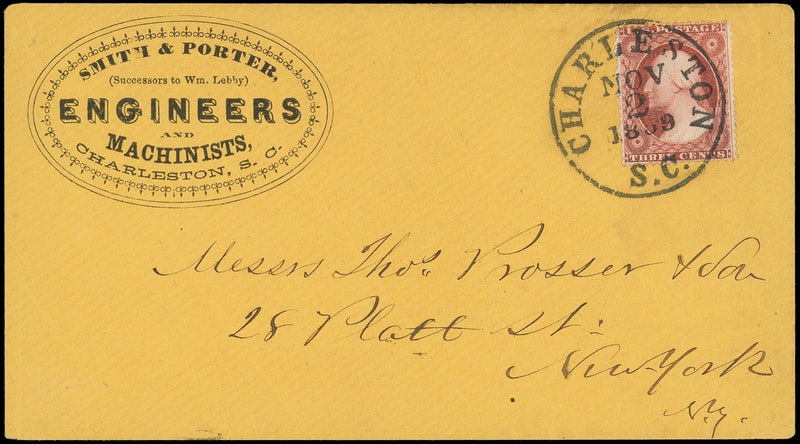 SMITH & PORTER,
(Successors to Wm. Lebby)
ENGINEERS
AND
MACHINISTS,
CHARLESTON, S. C.
CHARLESTON
NOV
2
1859
S.C.
POSTAGE
THREE CENTS
Messrs Thos Prosser & Son
28 Platt St.
New-York
N.Y.